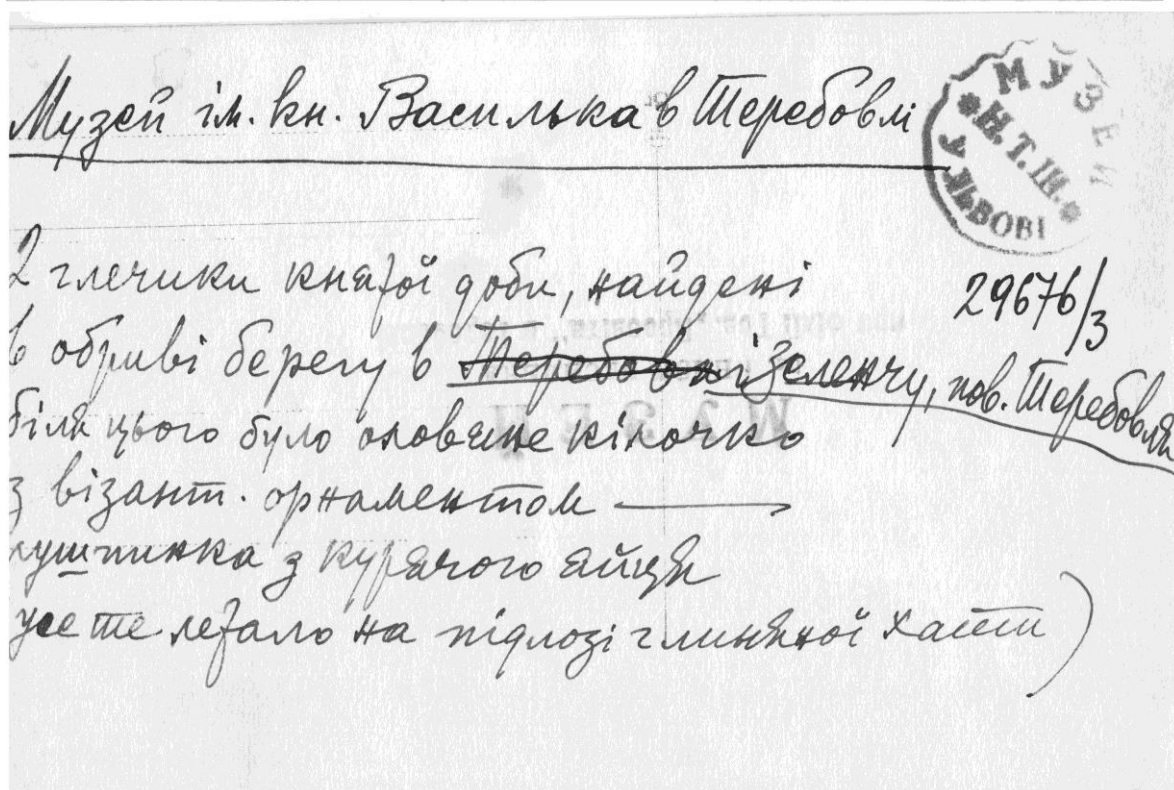 Музей ім. кн. Василька в Теребовлі
МУЗЕЙ
*Н.Т.Ш.*
У ЛЬВОВІ
2 глечики княжої доби, найдені
29676/3
в обриві берегу в Теребовлі Зеленчу, пов. Теребовля
біля цього було оловяне кілочко
з візант. орнаментом
лушпинка з курячого яйця
усе те лежало на підлозі глиняної хати)
МУЗЕЙ